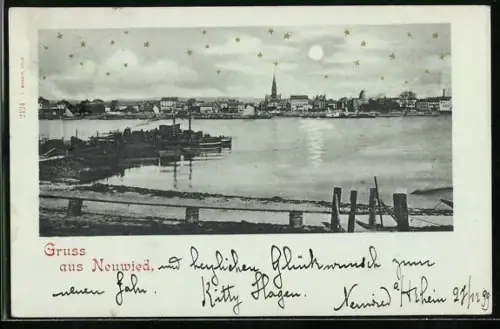 2124
Gruss
aus Neuwied, und herzlichen Glückwunsch zum
neuen Jahr. Kitty Hagen. Neuwied a/Rhein 27/12 99